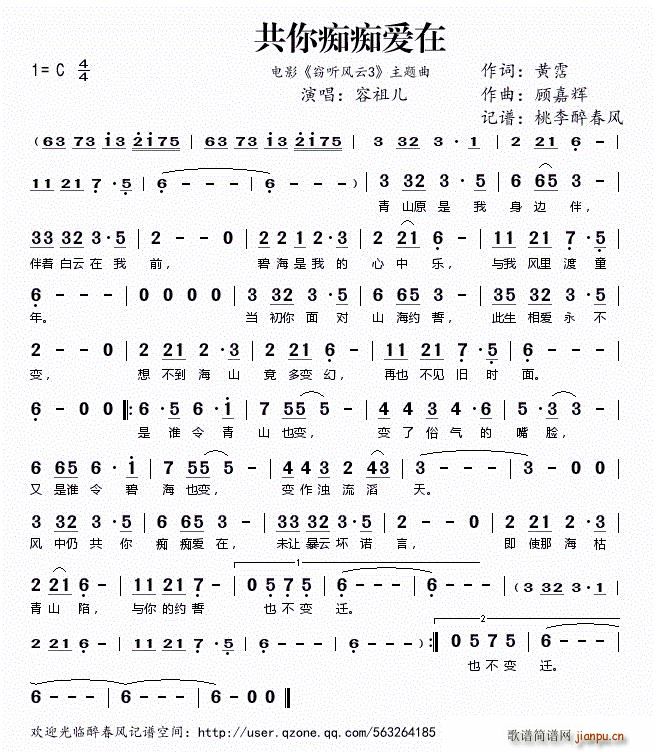 共你痴痴爱在
1= C 4/4
电影《窃听风云3》主题曲
作词：黄霑
演唱：容祖儿
作曲：顾嘉辉
记谱：桃李醉春风
( 63 73 63 73 2175 | 63 73 63 73 2175 | 3 32 3·1 | 2 21 6 -
11 21 7·5 | 6 - - - | 6 - - - ) | 3 32 3·5 | 6 65 3 -
青 山原 是 我 身 边 伴，
33 32 3·5 | 2 - - 0 | 22 21 2·3 | 2 21 6 - | 11 21 7·5
伴着 白云 在 我 前， 碧 海 是 我 的 心 中 乐， 与我 风里 渡 童
6 - - - | 0 0 0 0 | 3 32 3·5 | 6 65 3 - | 33 32 3·5
年。 当 初你 面 对 山 海约 誓， 此生 相爱 永 不
2 - - 0 | 2 21 2·3 | 2 21 6 - | 11 21 7·5 | 6 - - -
变， 想 不到 海 山 竟 多变 幻， 再也 不见 旧 时 面。
6 - 0 0 ‖: 6·5 6·1 | 7 55 5 - | 4 43 4·6 | 5·3 3 -
是 谁 令 青 山 也变， 变 了 俗 气 的 嘴 脸，
6 65 6·1 | 7 55 5 - | 44 32 43 | 3 - - - | 3 - 0 0
又 是谁 令 碧 海 也变， 变作 浊 流 滔 天。
3 32 3·5 | 6 65 3 - | 33 32 3·5 | 2 - - 0 | 2 21 2·3
风 中仍 共 你 痴 痴爱 在， 未让 暴云 坏 诺 言， 即 使那 海 枯
1
2 21 6 - | 11 21 7·5 | 0 575 | 6 - - - | 6 - - - | 3 32 3·1
青 山 陷， 与你 的约 誓 也 不 变 迁。
2
2 21 6 - | 11 21 7·5 | 6 - - - | 6 - - - :‖ 0 575 | 6 - - -
也 不 变 迁。
6 - - - | 6 - - - | 6 - 0 0 ‖
欢迎光临醉春风记谱空间：http://user.qzone.qq.com/563264185
歌谱简谱网
jianpu.cn